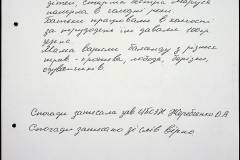 дітей, старша сестра Маруся
померла в голодні роки.
Батьки працювали в колгоспі
за трудодні їм давали 100гр
зерна.
Мама варила баланду з різних
трав - кропива, лобода, берізка,
Спогади записала зав.
Спогади записано зі слів вірно